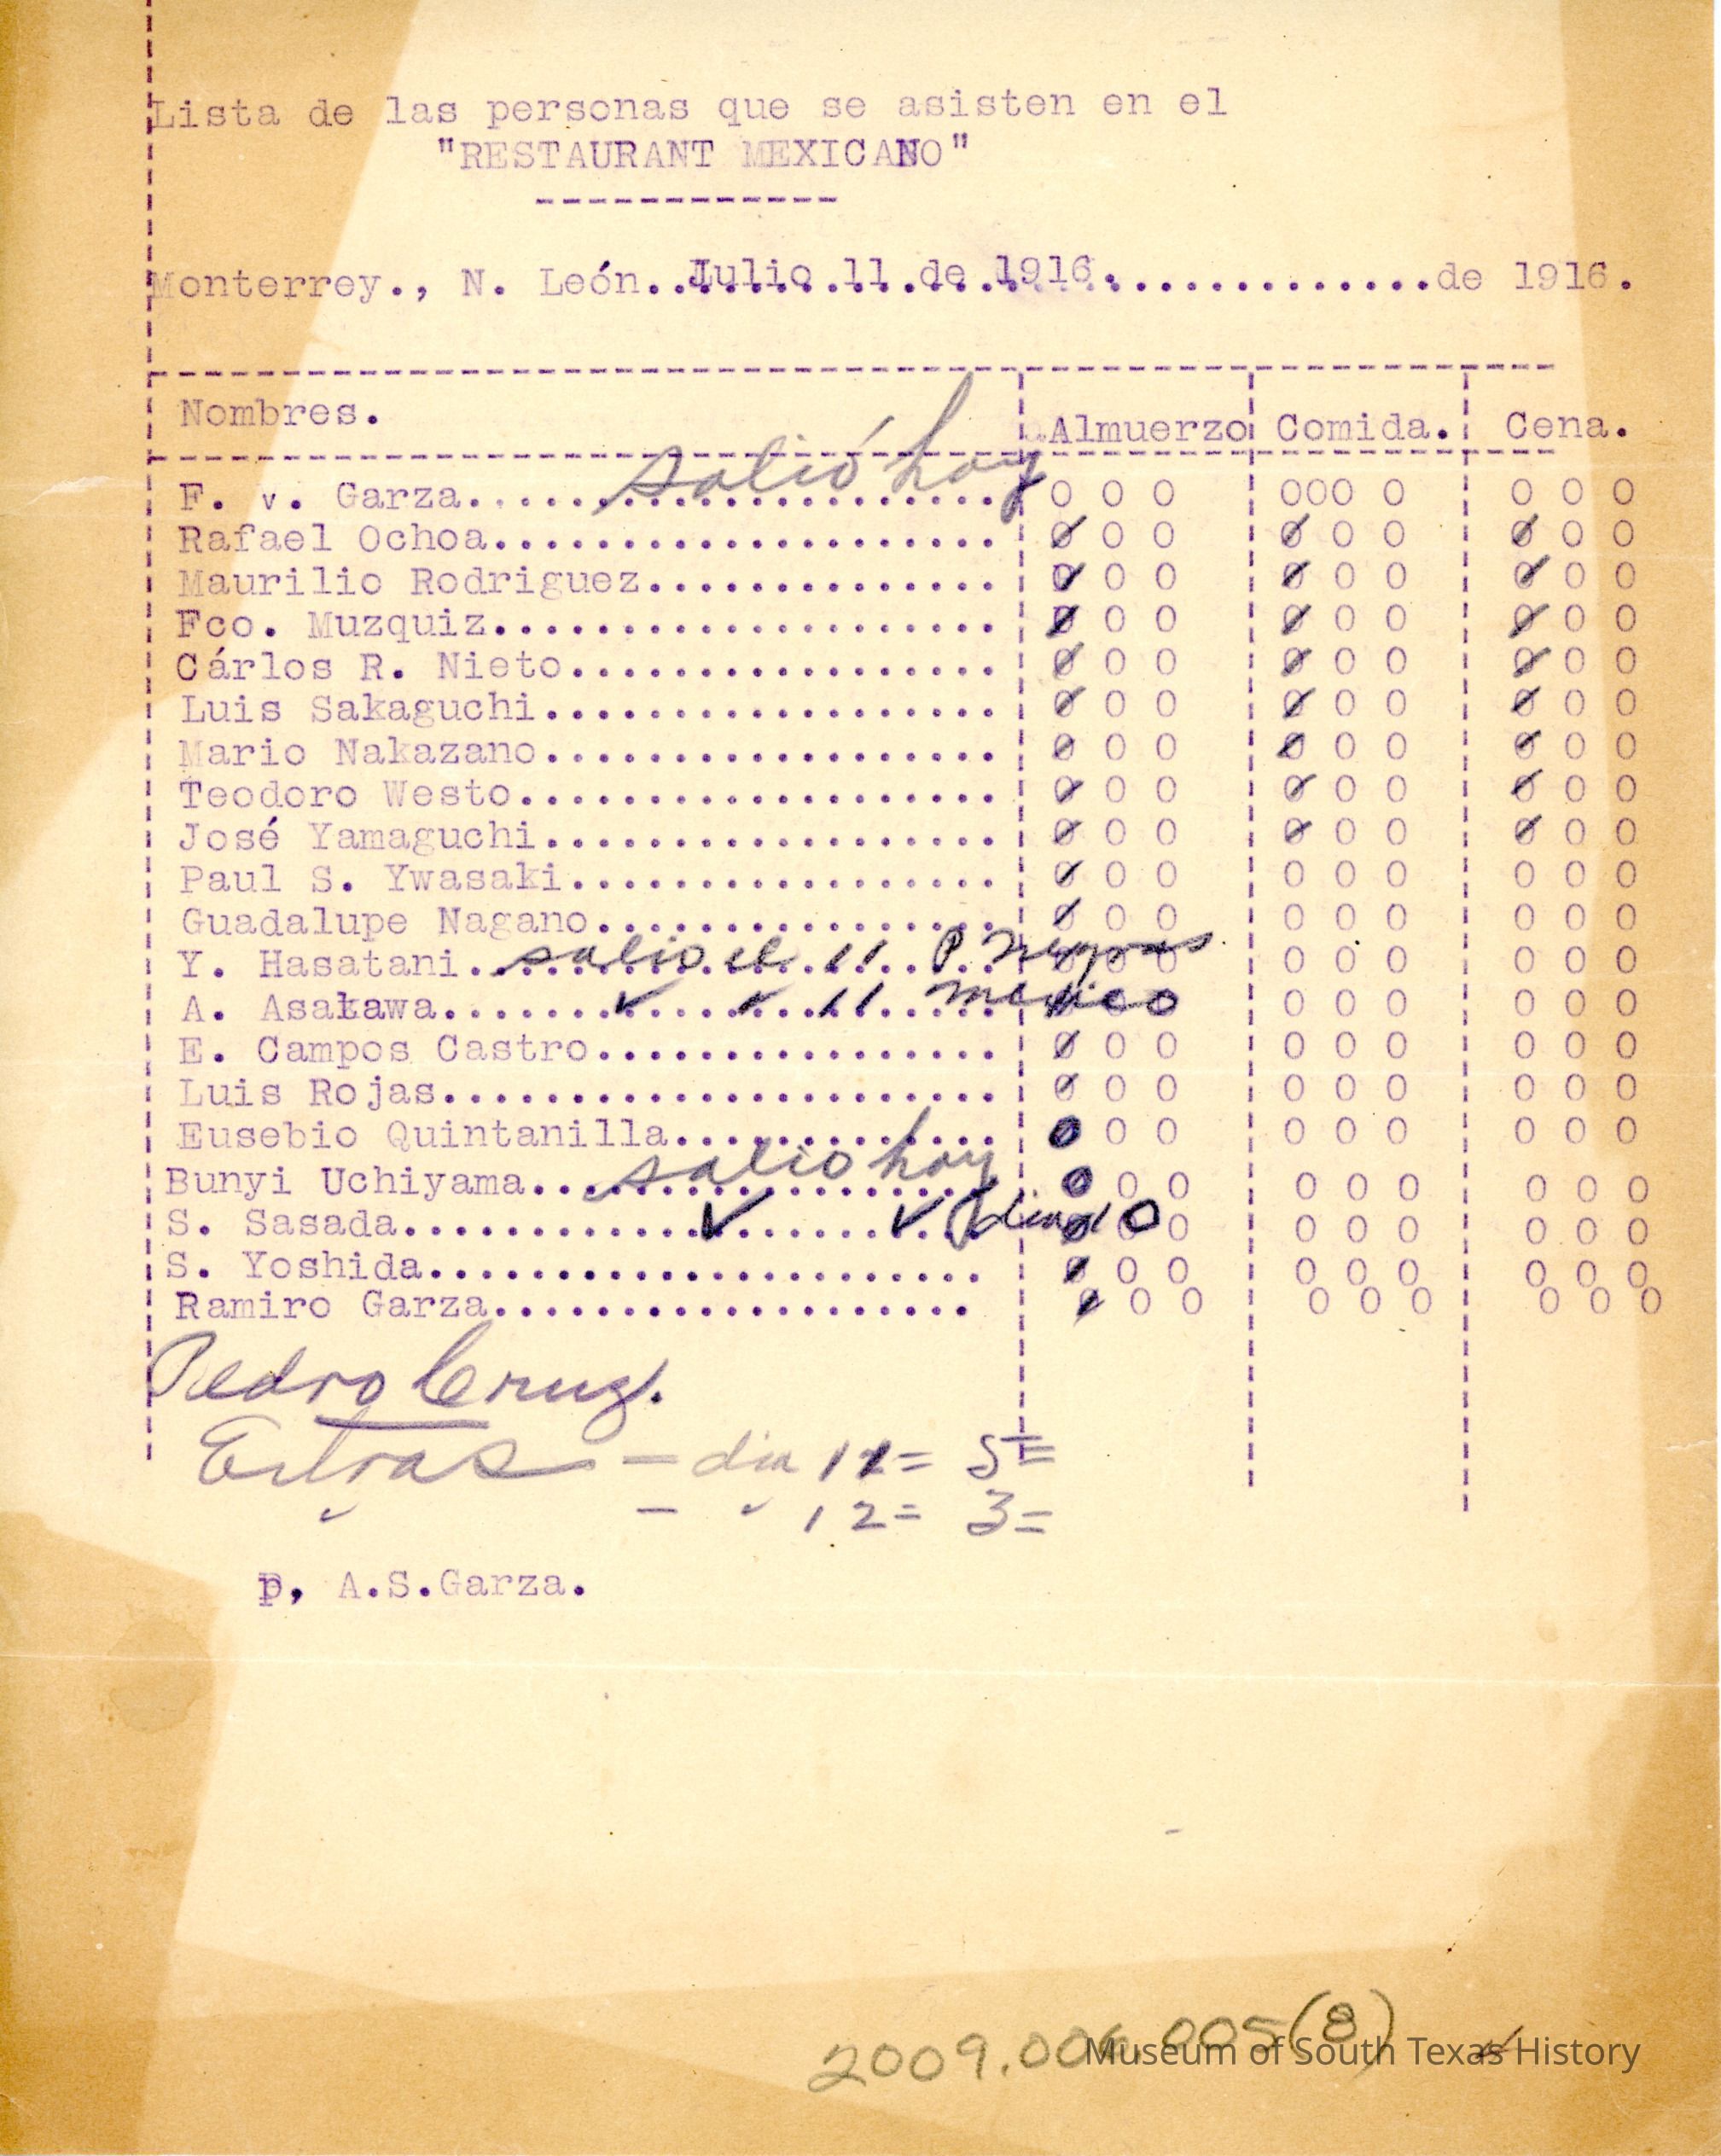 Lista de las personas que se asisten en el
"RESTAURANT MEXICANO"
------------
Monterrey., N. León..Julio 11 de 1916.............de 1916.
Nombres. Almuerzo Comida. Cena.
F. v. Garza..................... salió hoy 0 0 0 000 0 0 0 0
Rafael Ochoa.................... 0 0 0 0 0 0 0 0 0
Maurilio Rodriguez.............. 0 0 0 0 0 0 0 0 0
Fco. Muzquiz.................... 0 0 0 0 0 0 0 0 0
Cárlos R. Nieto................. 0 0 0 0 0 0 0 0 0
Luis Sakaguchi.................. 0 0 0 0 0 0 0 0 0
Mario Nakazano.................. 0 0 0 0 0 0 0 0 0
Teodoro Westo................... 0 0 0 0 0 0 0 0 0
José Yamaguchi.................. 0 0 0 0 0 0 0 0 0
Paul S. Ywasaki................. 0 0 0 0 0 0 0 0 0
Guadalupe Nagano................ 0 0 0 0 0 0 0 0 0
Y. Hasatani..................... salio el 11 P Negras 0 0 0 0 0 0 0 0 0
A. Asakawa...................... ✓ ✓ 11 mexico 0 0 0 0 0 0
E. Campos Castro................ 0 0 0 0 0 0 0 0 0
Luis Rojas...................... 0 0 0 0 0 0 0 0 0
Eusebio Quintanilla............. 0 0 0 0 0 0 0 0 0
Bunyi Uchiyama.................. salio hoy 0 0 0 0 0 0 0 0 0
S. Sasada....................... ✓ ✓ 0 0 0 0 0 0 0 0
S. Yoshida...................... 0 0 0 0 0 0 0 0 0
Ramiro Garza................... 0 0 0 0 0 0 0 0 0
Pedro Cruz.
Extras — dia 11= 5=
✓ — ✓ 12= 3=
p, A.S.Garza.
2009.006.005(8)
Museum of South Texas History